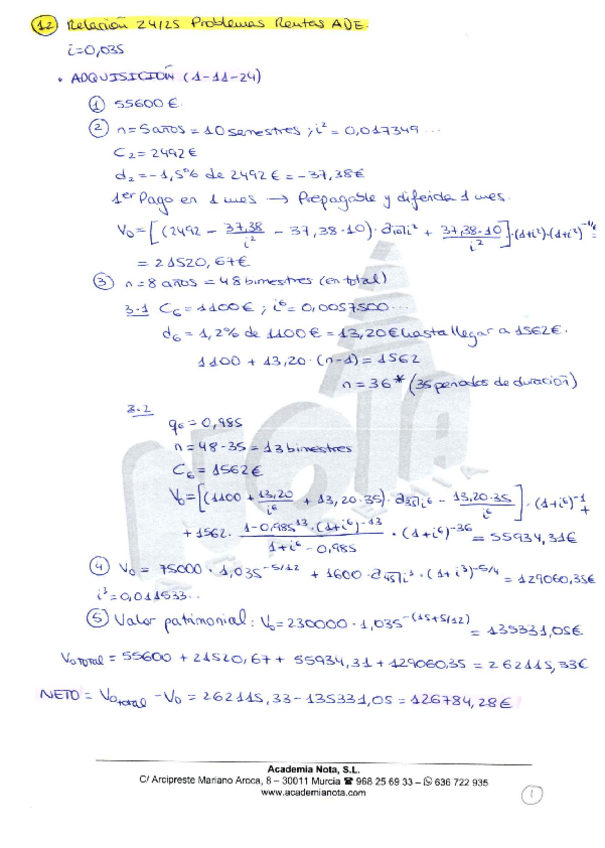 12 Relación 24/25 Problemas Rentas ADE.
i=0,035
• ADQUISICIÓN (1-11-24)
① 55600 €.
② n = 5 años = 10 semestres ; i² = 0,017349...
C₂ = 2492 €
d₂ = -1,5% de 2492 € = -37,38 €
1er Pago en 1 mes → Prepagable y diferida 1 mes.
V₀ = [(2492 - 37,38/i² - 37,38·10) · a10⌉i² + 37,38·10/i²] · (1+i²) · (1+i²)^-1/6 =
= 21520,67 €
③ n = 8 años = 48 bimestres (en total)
3.1 C₆ = 1100 € ; i⁶ = 0,0057500...
d₆ = 1,2% de 1100 € = 13,20 € hasta llegar a 1562 €.
1100 + 13,20 · (n-1) = 1562
n = 36 * (35 periodos de duración)
3.2
q₆ = 0,985
n = 48-35 = 13 bimestres
C₆ = 1562 €
V₀ = [(1100 + 13,20/i⁶ + 13,20·35) · a35⌉i⁶ - 13,20·35/i⁶] · (1+i⁶)^-1 +
+ 1562 · (1-0,985^13 · (1+i⁶)^-13)/(1+i⁶-0,985) · (1+i⁶)^-36 = 55934,31 €
④ V₀ = 75000 · 1,035^-5/12 + 1600 · a45⌉i³ · (1+i³)^-5/4 = 129060,35 €
i³ = 0,011533...
⑤ Valor patrimonial: V₀ = 230000 · 1,035^-(15+5/12) = 135331,05 €
V₀ TOTAL = 55600 + 21520,67 + 55934,31 + 129060,35 = 262115,33 €
NETO = V₀ total - V₀ = 262115,33 - 135331,05 = 126784,28 €
NOTA
Academia Nota, S.L.
C/ Arcipreste Mariano Aroca, 8 – 30011 Murcia ☎ 968 25 69 33 – 636 722 935
www.academianota.com
1